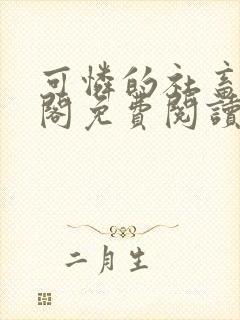 可憐的社畜
閣免費閱讀
二月生